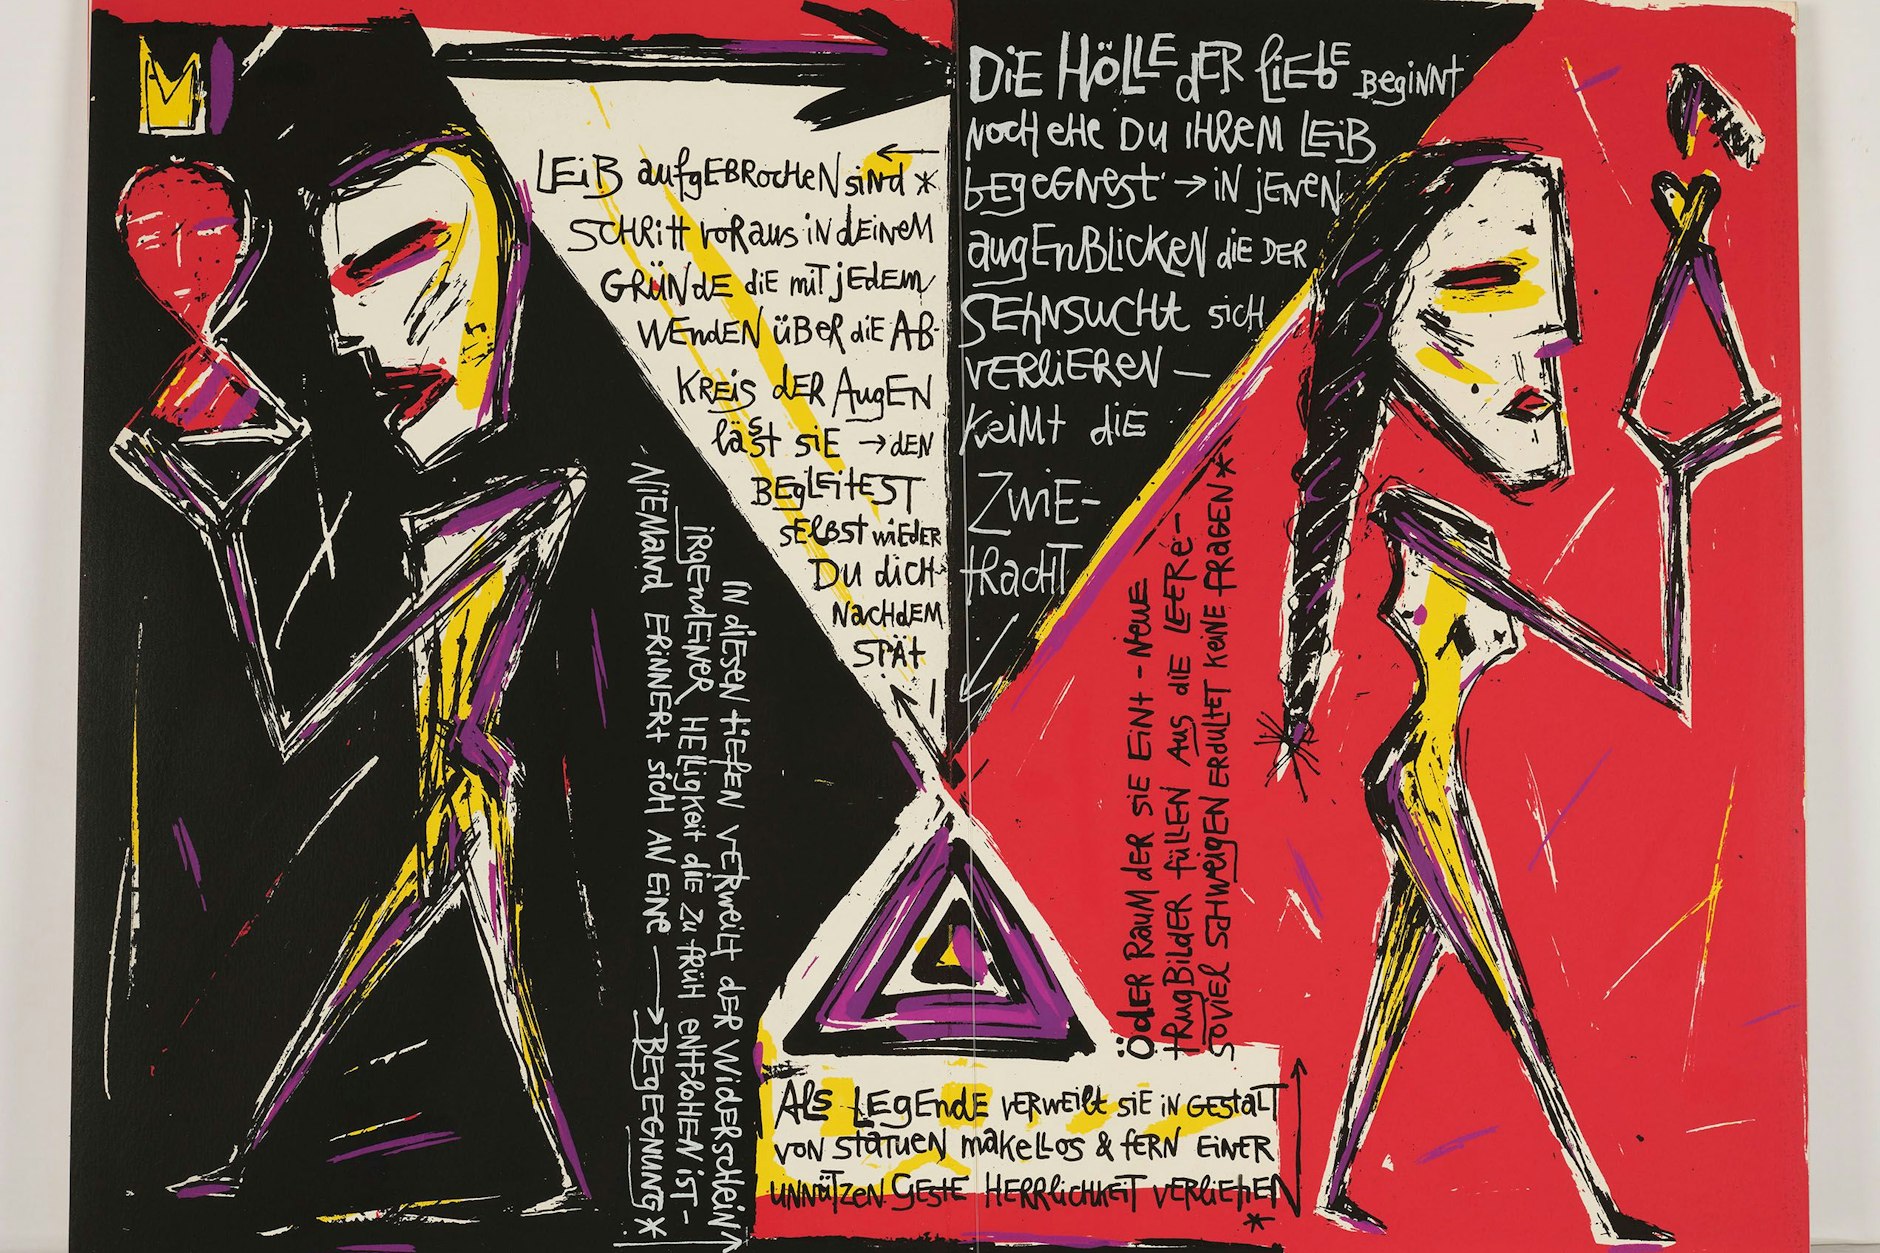 DiE HÖLLE dER liEbE BEgiNNT
NOCH EHE DU IHREM LEIB
bEgEGNEST' → iN JENEN
augENBLiCKEN diE DER
SEHNSUCHt siCH
VERliEREN —
KEiMt diE
ZWiE-
tRacHT
LEiB aufgEBROCHEN siNd *
SCHRitt voRaus iN dEiNEM
GRÜNdE diE miT jEdEm
WENdEN ÜBER diE AB-
KREiS dER AugEN
lässt siE → dEN
BEglEitEST
sElbST wiEdER
DU diCH
NACHdEM
SPÄt
iN diESEN tiEfEN VERWEilt dER WidERSCHEiN
iRgENdEiNER HEiligKEit diE zu fRÜH ENtflOHEN iSt -
NiEMaNd ERiNNERt siCH AN EiNE → BEgEgNUNg *
ÖdER RauM dER siE EiNt - NEUE
tRugBildER füllEN Aus diE LEERE -
soviEl SCHWEigEN ERduldEt KEiNE fRAgEN *
Als LEgENdE VERWEilt SiE iN GEStalT
voN StatuEN makEllOS & fERN EiNER
uNNützEN GEStE HERRliCHKEiT VERliEHEN
*